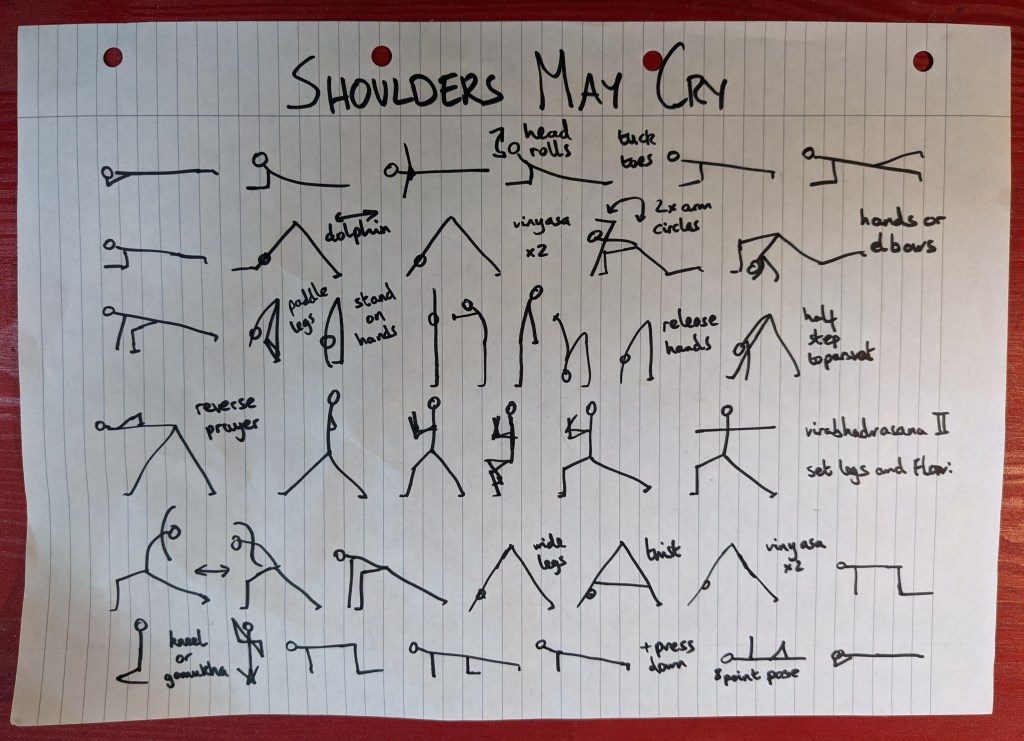 SHOULDERS MAY CRY
head
rolls
tuck
toes
dolphin
vinyasa
x2
2x arm
circles
hands or
elbows
paddle
legs
stand
on
hands
release
hands
half
step
to parsvot
reverse
prayer
virabhadrasana II
set legs and flow:
wide
legs
twist
vinyasa
x2
kneel
or
gomukha
+ press
down
8 point pose